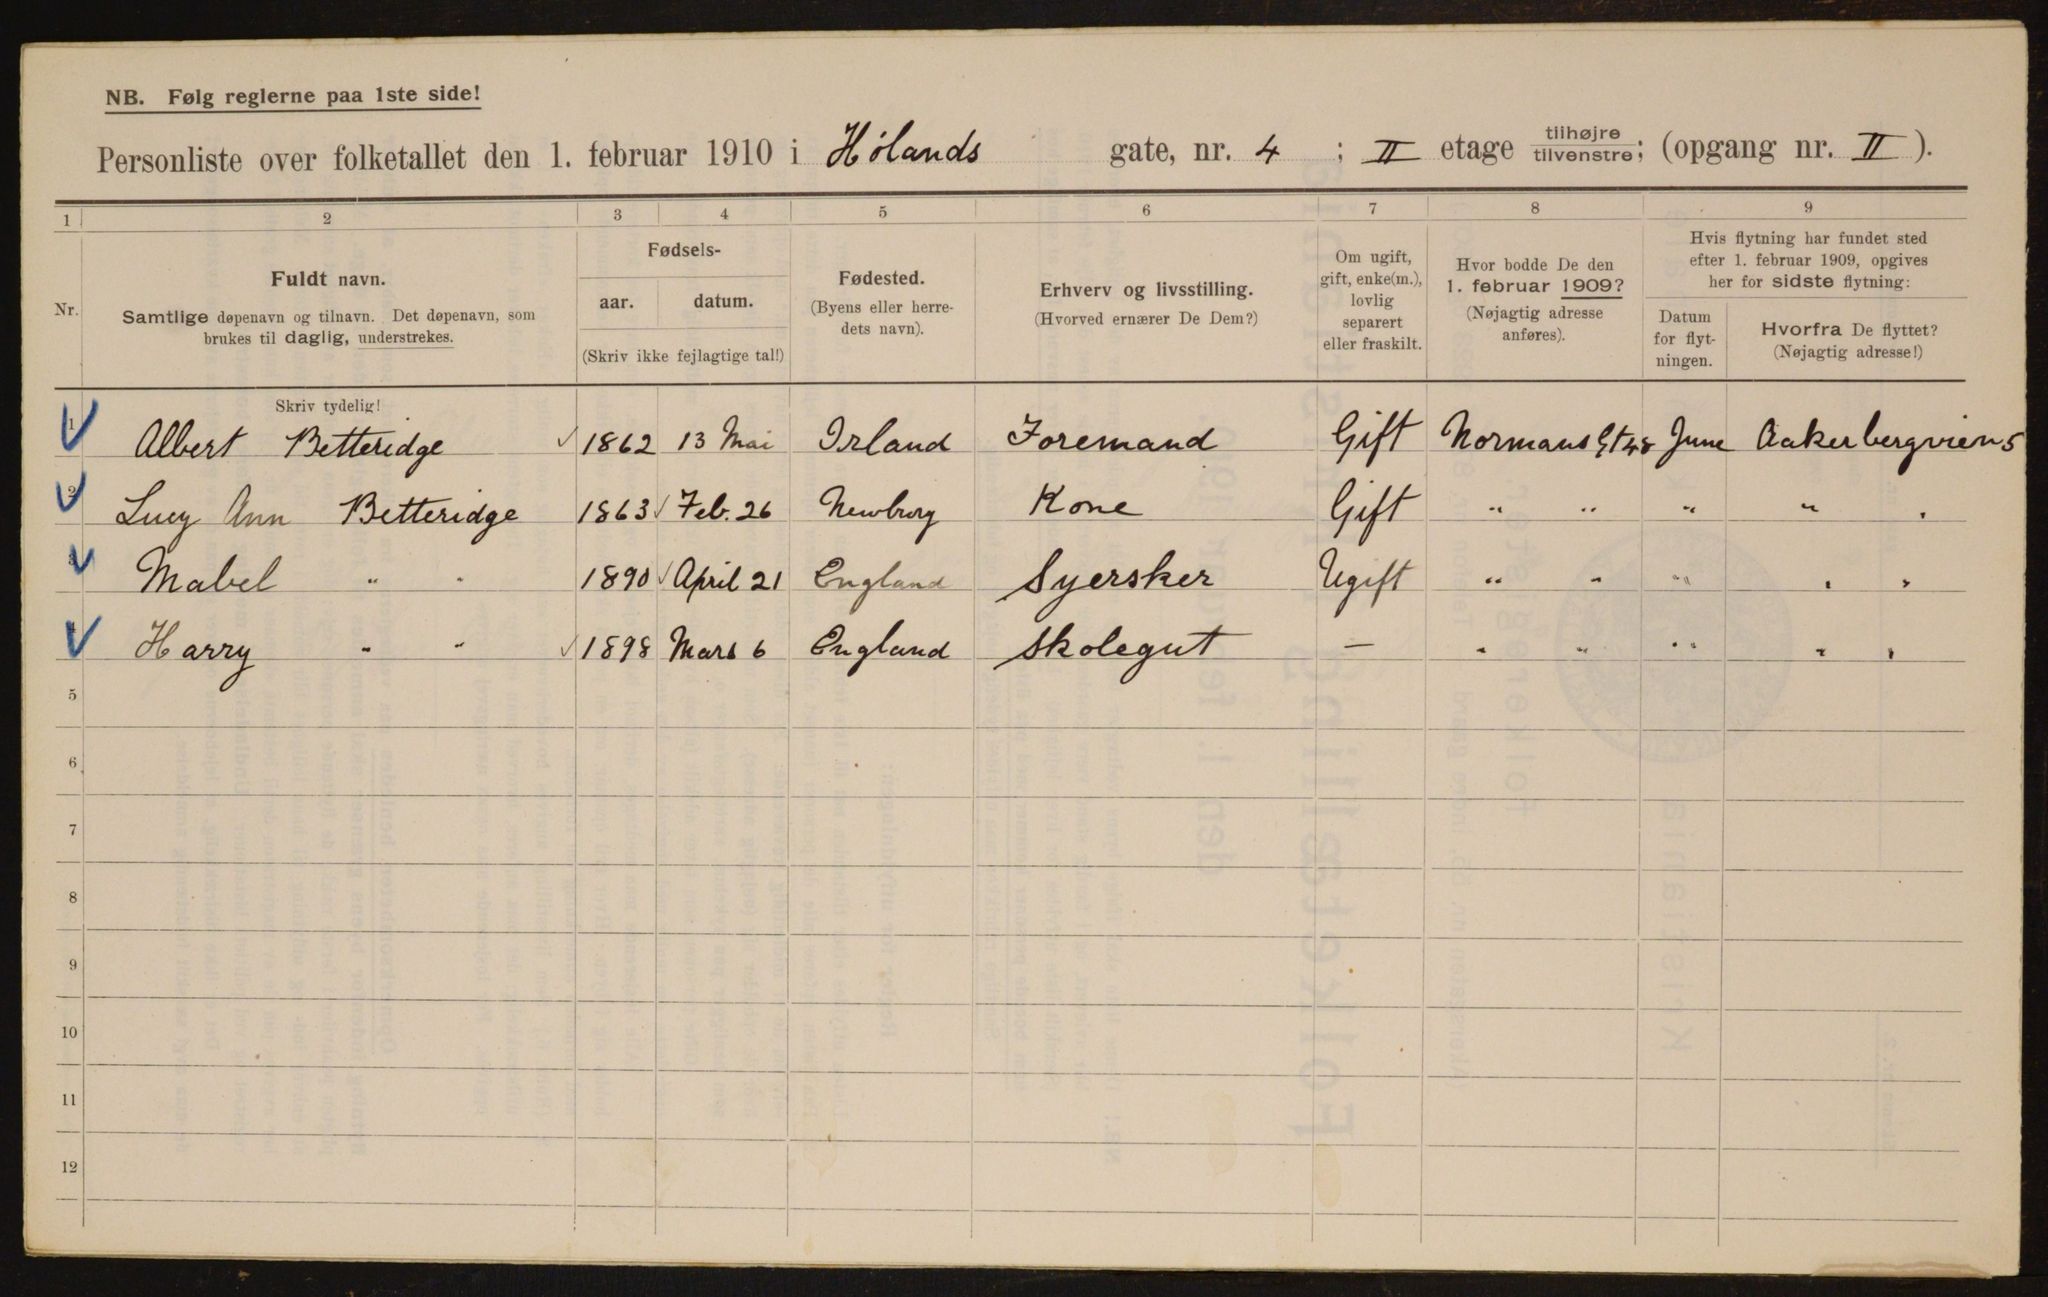 NB. Følg reglerne paa 1ste side!
Personliste over folketallet den 1. februar 1910 i Hølands gate, nr. 4 ; II etage tilhøjre tilvenstre; (opgang nr. II ).
1 2 3 4 5 6 7 8 9
Nr.
Fuldt navn.
Samtlige døpenavn og tilnavn. Det døpenavn, som
brukes til daglig, understrekes.
Fødsels-
aar. datum.
(Skriv ikke fejlagtige tal!)
Fødested.
(Byens eller herre-
dets navn).
Erhverv og livsstilling.
(Hvorved ernærer De Dem?)
Om ugift,
gift, enke(m.),
lovlig
separert
eller fraskilt.
Hvor bodde De den
1. februar 1909?
(Nøjagtig adresse
anføres).
Hvis flytning har fundet sted
efter 1. februar 1909, opgives
her for sidste flytning:
Datum
for flyt-
ningen.
Hvorfra De flyttet?
(Nøjagtig adresse!)
Skriv tydelig!
1 Albert Betteridge 1862 13 Mai Irland Foremand Gift Normans Gt 48 June Aakerbergvien 5
2 Lucy Ann Betteridge 1863 Feb. 26 Gift " " " " "
3 Mabel " " 1890 April 21 England Syersker Ugift " " " " "
4 Harry " " 1898 Mars 6 England Skolegut — " " " " "
5
6
7
8
9
10
11
12